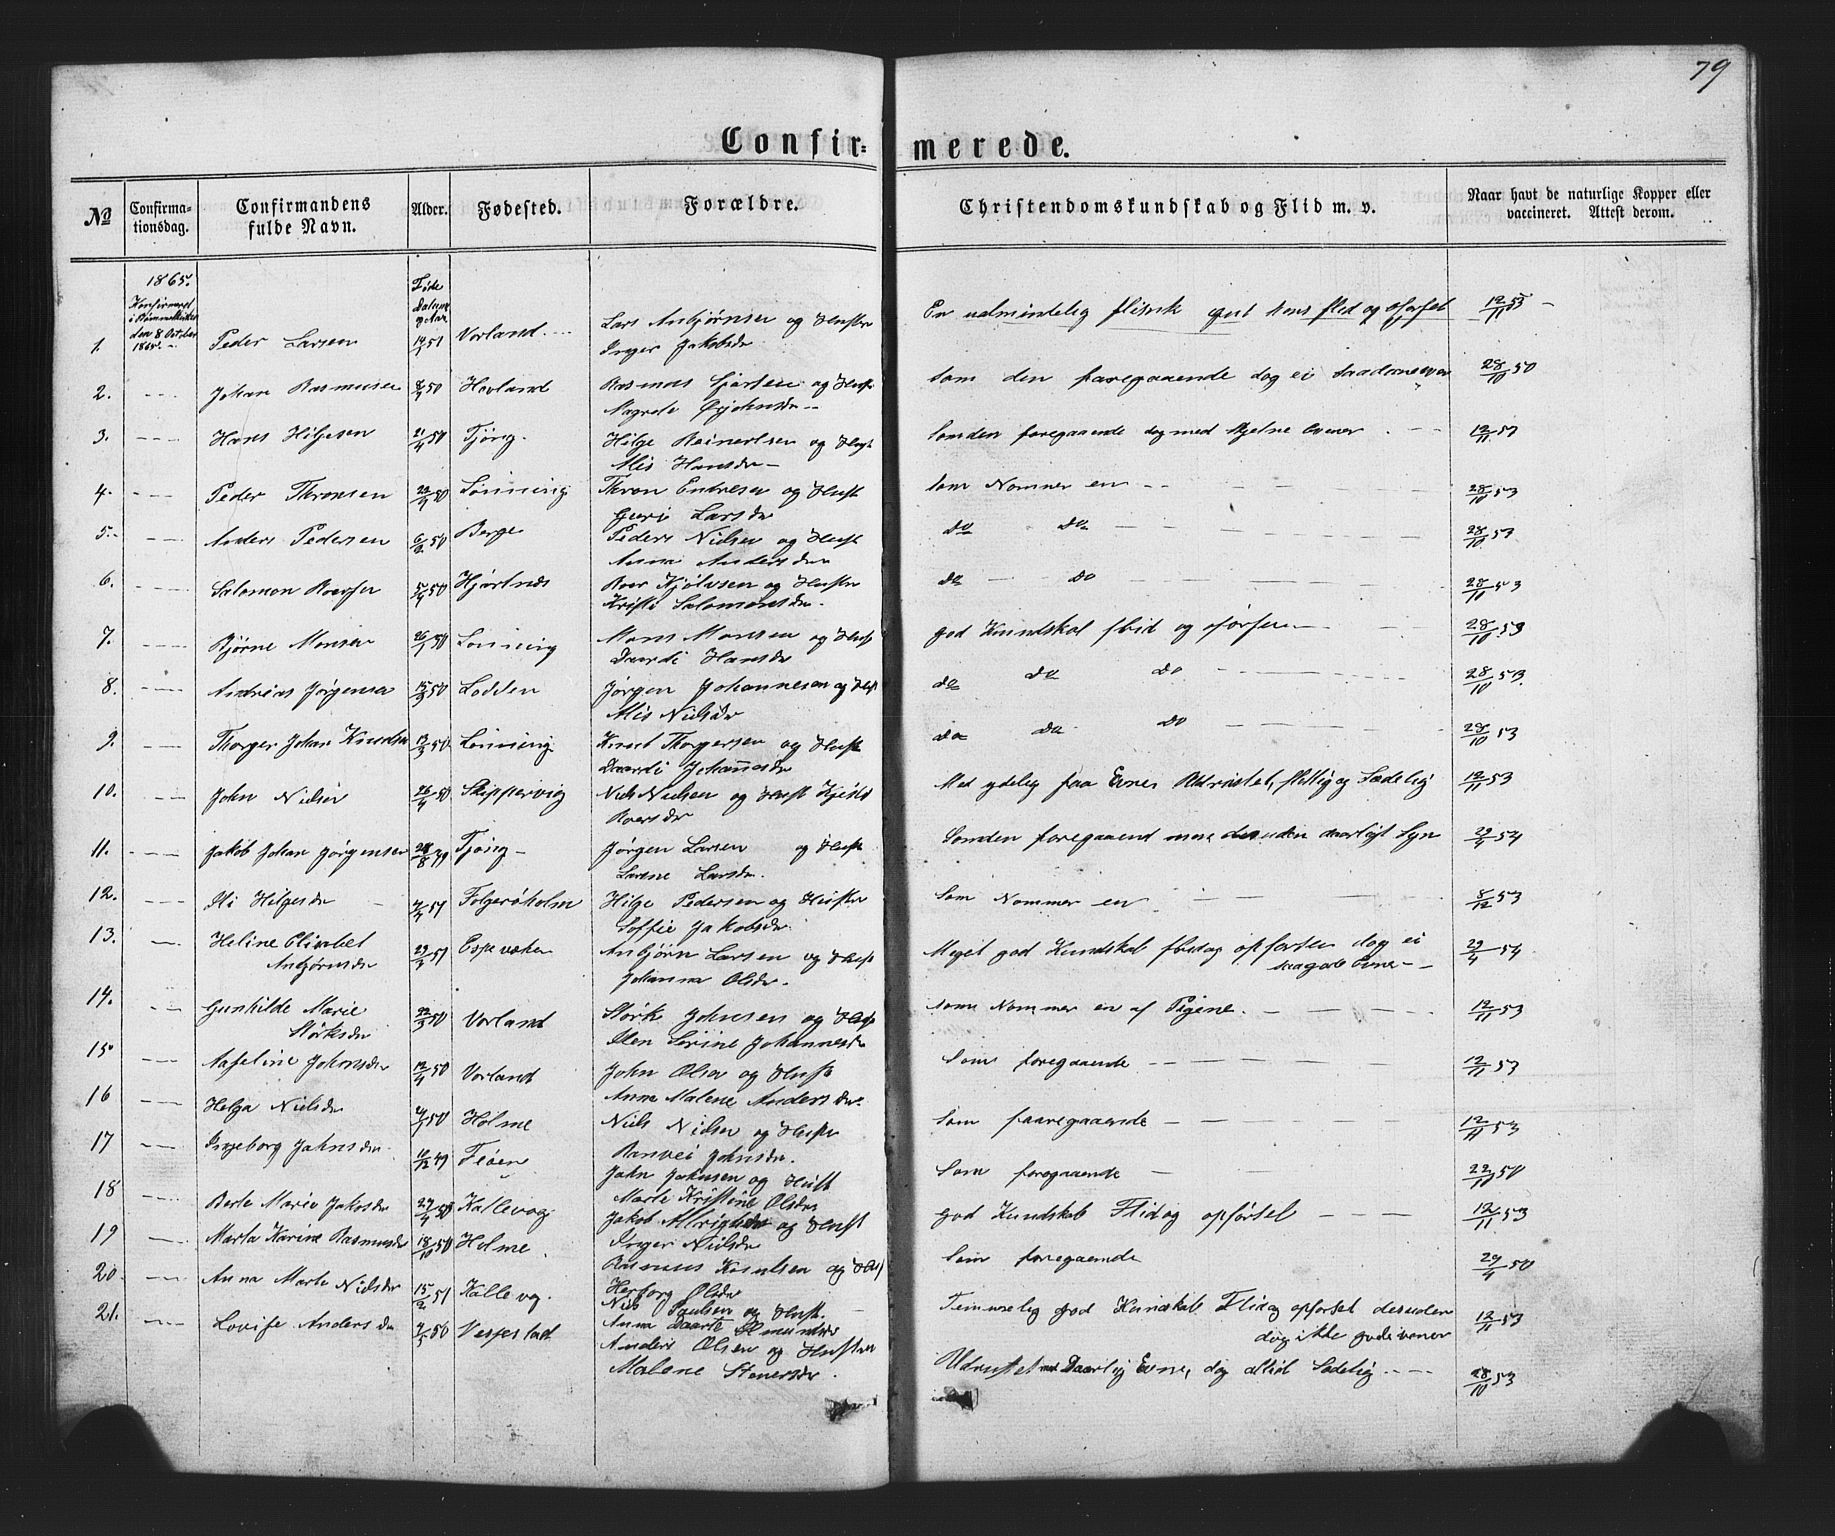 79
Confir- merede.
No
Confirma-
tionsdag.
Confirmandens
fulde Navn.
Alder.
Fødested.
Forældre.
Christendomskundskab og Flid m. v.
Naar havt de naturlige Kopper eller
vaccineret. Attest derom.
1865.
den 8 October
1865
Føde
Datum
og Aar
1. Peder Larsen Vorland Lars Anbjørnsen og Hustru
Inger Jakobsdr
En udmindelig flisik god kons flid og oforsel 12/11 53
2. Johan Rasmusen 50 Hovland Rasmus og Hust
Magrete
Som den foregaaende dog ei 28/10 50
3. Hans Hilgesen 21/4 50 Tjøng. Hilge Reinertsen og Hust
Alis Hansdr
Som den foregaaende dog med Evener 12/11 51
4. Peder Thronsen 50 Lønning Thron Endresen og Hust
Guri Larsdr
Som Nommer en 28/10 53
5. Anders Pedersen 50 Berge Peders Nilsen og Hust
Anna Andersdr
do do 28/10 53
6. Salomon 50 Hjørtnes og Hustr
Kristi Salomonsdr.
do do 28/10 53
7. Bjørne Monsen 50 Lønning Mons Monsen og Hust
Daardi Hansdr
god Kundskab flid og oførsen 28/10 53
8. Andreas Jørgensen 15/3 50 Lodden Jørgen Johannesen og Hust
Alis Nielsdr
do do do 28/10 53
9. Thorger Johan Knudsen 50 Lønning Knut Thorgersen og Hust
Daardi Johannesdr
do do do 28/10 53
10. John Nielsen 26/4 50 Skippervig Niels Nielsen og Hust
Roersdr
Med ydelig faa Evner Udrustet, flittig og Sædelig 12/11 53
11. Jakob Johan Jørgensen 49 Tjøng Jørgen Larsen og Hust
Larsdr.
Som den foregaaend men desuden daarligt Syn 29/4 54
12. Helgesdr 51 Folgerøholm Hilge Pedersen og Hustru
Soffie Jakobsdr
Som Nommer en 8/12 53
13. Heline
Anbjørnsdr
51 Espevæker Anbjørn Larsen og Hust
Johanna Olsdr.
Meget god Kundskab flid og opførsen dog ei
saa gode Evne
29/4 54
14. Gunhilde Marie
Størksdr
22/3 50 Vorland Størk Johnsen og Hust
Elen Serine Johannesdr
som Nommer en af Pigene. 12/11 53
15 Johnsdr 12/4 50 Vorland John Olsen og Hust
Anna Malene Andersdr.
Som foregaaende 12/11 53
16 Helga Nielsdr 50 Holme Niels Nielsen og Hustr
Ranvei Johnsdr.
Som faaregaaende 12/11 53
17 Ingeborg Jahnsdr 10/12 49 Fløen John Johnsen og Hust
Marte Kristine Olsdr
Som foregaaende 22/11 50
18 Berte Marie Jakobsdr 50 Kallevog Jakob og Hust
Inger Nielsdr
god Kundskab Flid og opførsel 12/11 53
19 Marta Karine Rasmusdr 18/10 50 Holme. Rasmus Knutsen og Hust
Herborg Olsdr
Som foregaaende 29/4 50
20 Anna Marte Nielsdr 15/2 51 Kallevog. Niels Paulsen og Hust.
Anna Daarte
Temmelig god Kundskab Flid og opførsel desuden
dog ikke gode evener
12/11 53
21. Lovise Andersdr 50 Vespestad Anders Olsen og Hustru
Malene Stenersdr.
Udrustet med Daarlig Evne, dog altid Sædelig 28/10 53